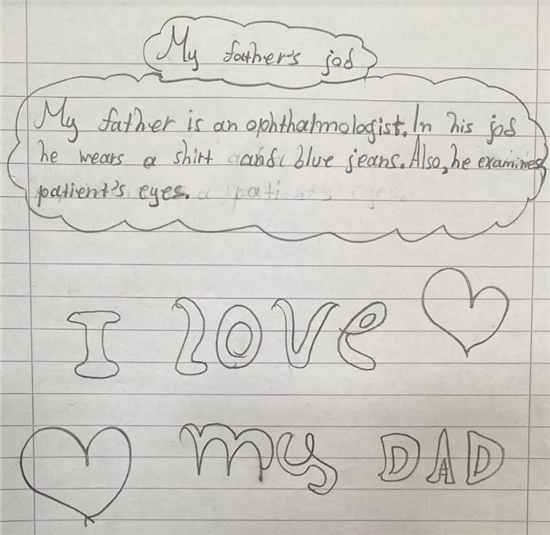 My father's jod
My father is an ophthalmologist. In his jod
he wears a shirt and blue jeans. Also, he examines
patient's eyes.
I love
my DAD